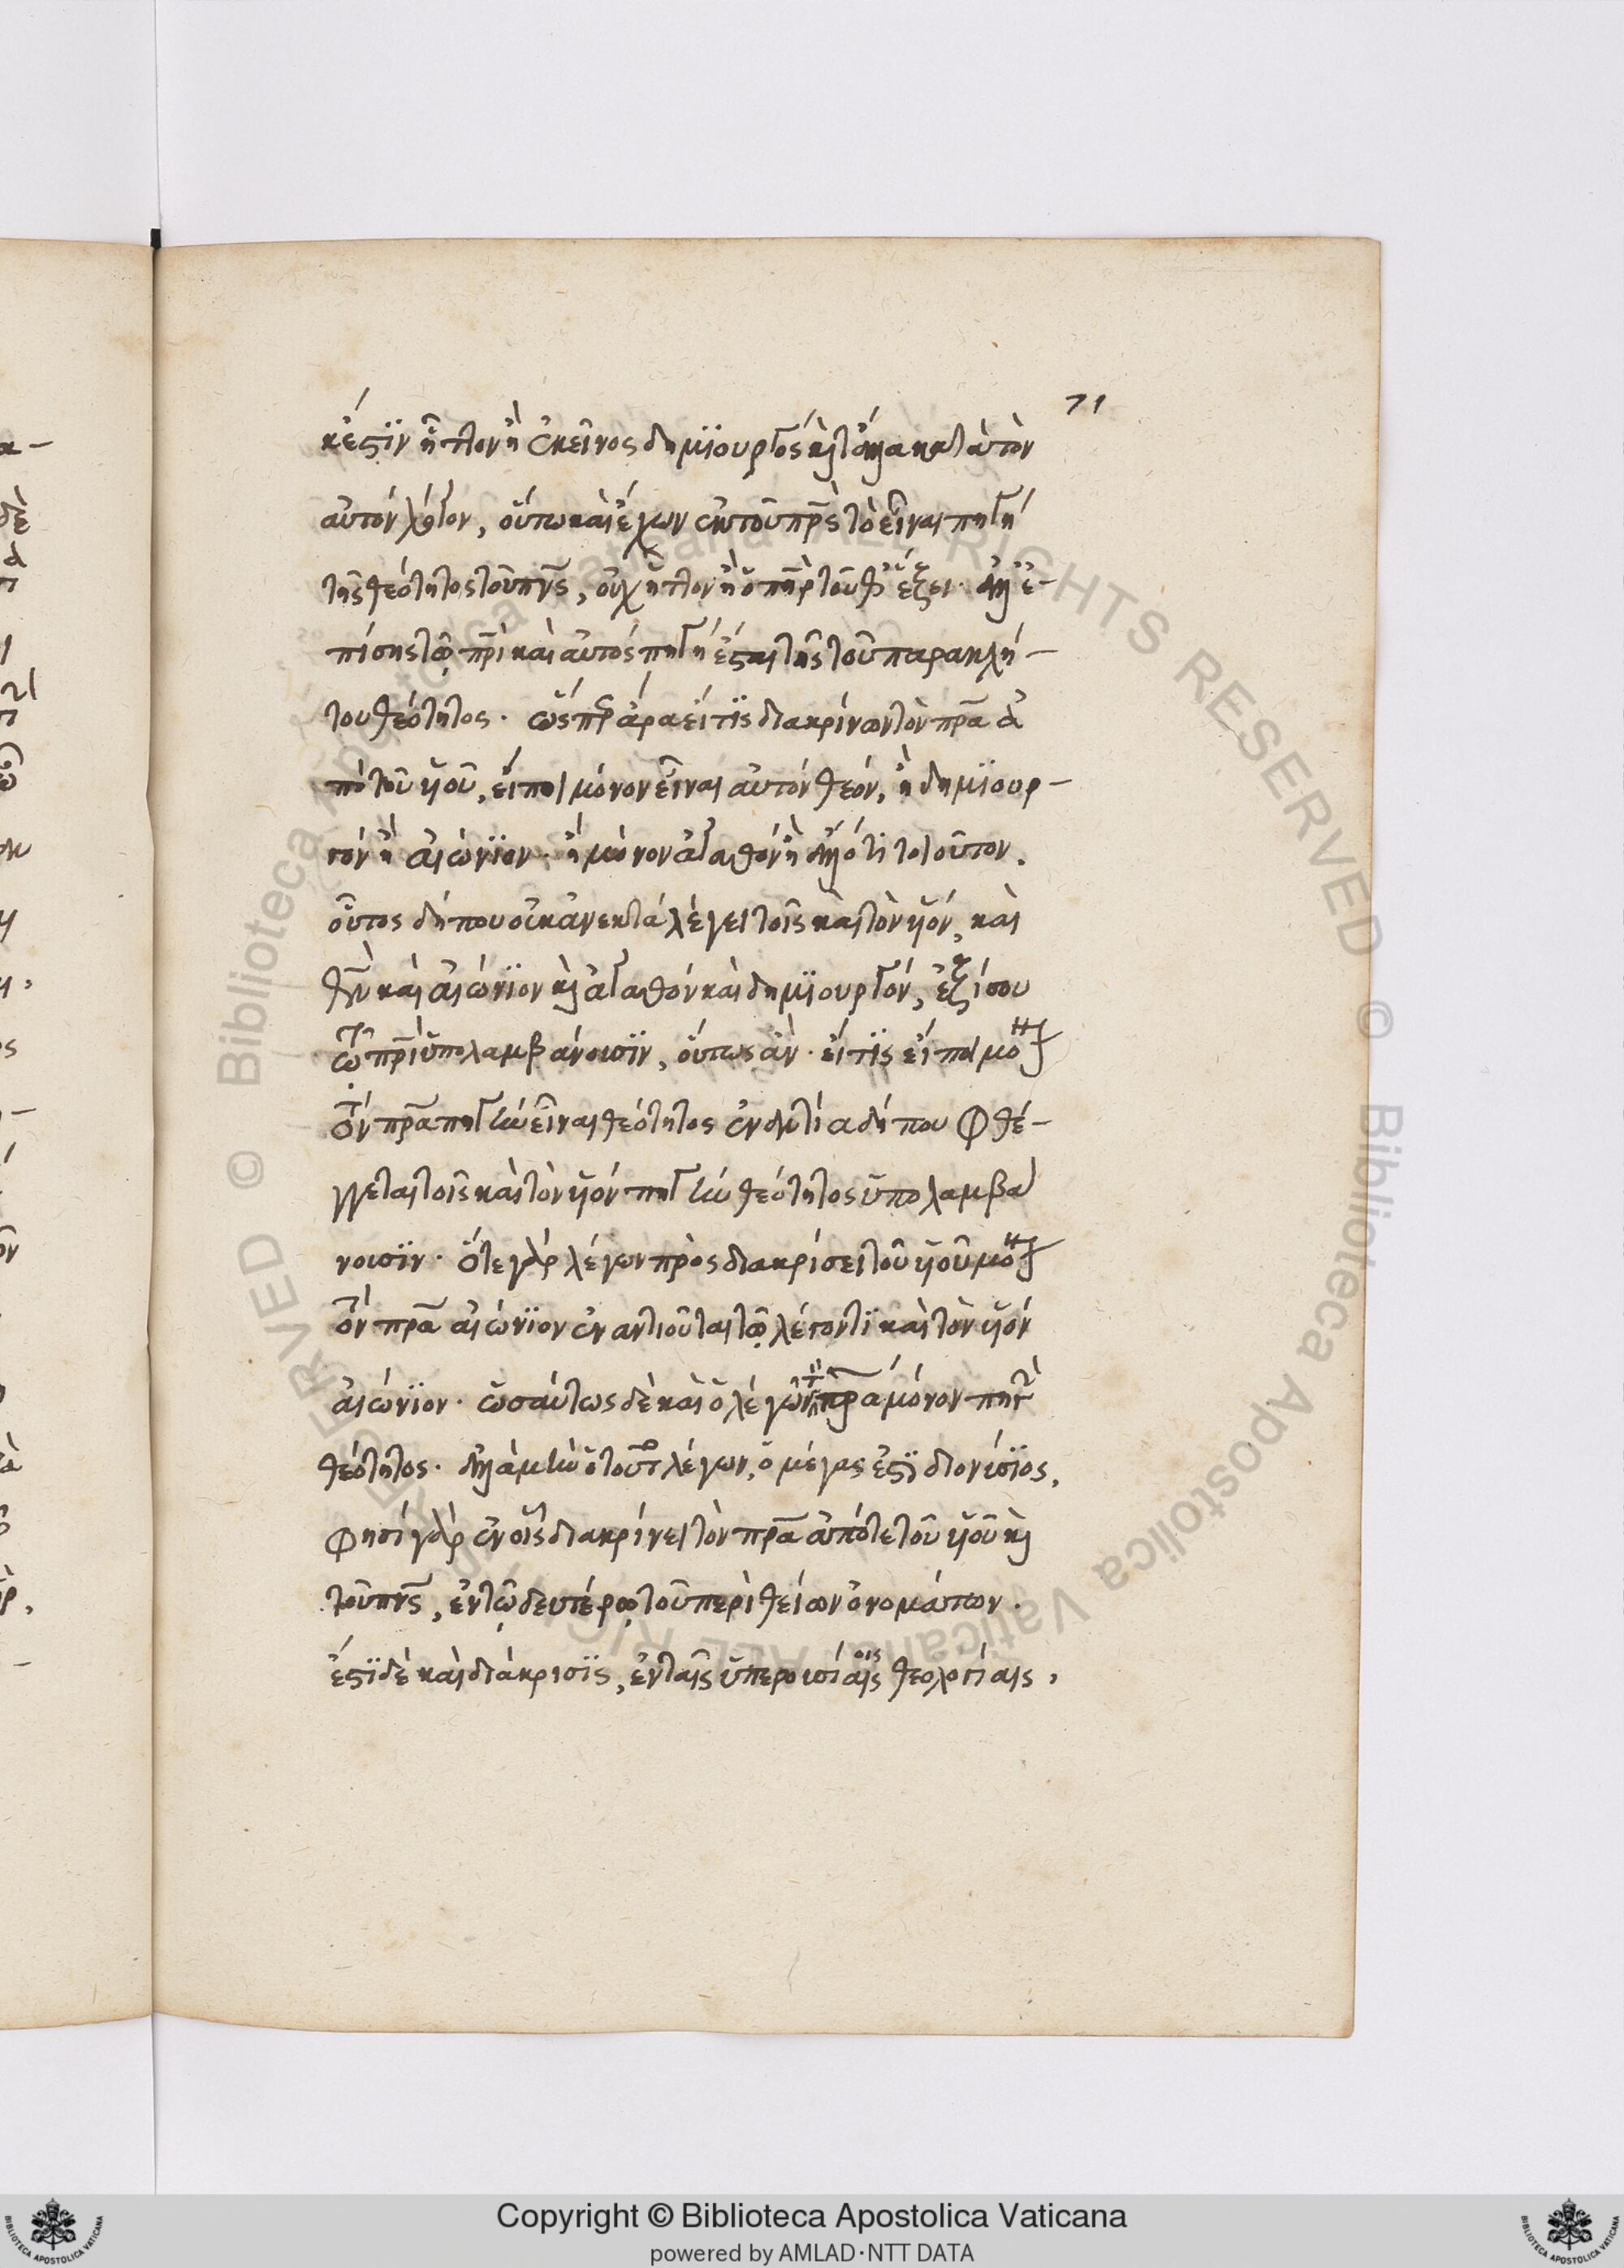 71
κἔστιν ἧττον ἢ ἐκεῖνος δημϊουργός καὶ τἄλλα κατὰ τὸν
αὐτόν λόγον, οὕτω καὶ ἔχων ἐκ τοῦ πρς τὸ εἶναι πηγή
τῆς θεότητος τοῦ πνς, οὐχ ἧττον ἢ ὁ πηρ τοῦθ' ἕξει· ἀλλ' ἐ-
πίσης τῷ πρὶ καὶ αὐτός πηγή ἔσται τῆς τοῦ παρακλή-
του θεότητος· ὥσπερ ἄρα εἴ τϊς διακρίνων τὸν πρα ἀ
πὸ τοῦ υἱοῦ, εἴποι μόνον εἶναι αὐτόν θεόν, ἢ δημϊουρ-
γόν ἢ αἰώνϊον· ἢ μόνον ἀγαθόν ἢ ἄλλό τι τοιοῦτον.
οὗτος δήπου οὐκ ἀνεκτά λέγει τοῖς καὶ τὸν υἱόν, καὶ
θν καὶ αἰώνϊον καὶ ἀγαθόν καὶ δημϊουργόν, ἐξίσου
τῷ πρὶ ὑπολαμβάνουσϊν, οὕτως ἂν· εἴ τϊς εἴποι μόνον
τόν πρα πηγὴν εἶναι θεότητος ἐναντία δήπου φθέ-
γγεται τοῖς καὶ τὸν υἱόν πηγὴν θεότητος ὑπολαμβά
νουσϊν· ὅτε γὰρ λέγων πρὸς διακρίσει τοῦ υἱοῦ μόνον
τόν πρα αἰώνϊον ἐναντιοῦται τῷ λέγοντϊ καὶ τὸν υἱόν
αἰώνϊον· ὡσαύτως δὲ καὶ ὁ λέγων τὸν πρα μόνον πηγὴν
θεότητος· ἀλλὰ μὴν ὁ τοῦτο λέγων, ὁ μέγας ἐστϊ διονύσϊος,
φησί γὰρ ἐν οἷς διακρίνει τὸν πρα ἀπό τε τοῦ υἱοῦ καὶ
τοῦ πνς, ἐν τῷ δευτέρῳ τοῦ περὶ θείων ὀνομάτων·
ἔστϊ δὲ καὶ διάκρισϊς, ἐν ταῖς ὑπερουσίαις θεολογίαις,
Copyright © Biblioteca Apostolica Vaticana
powered by AMLAD·NTT DATA